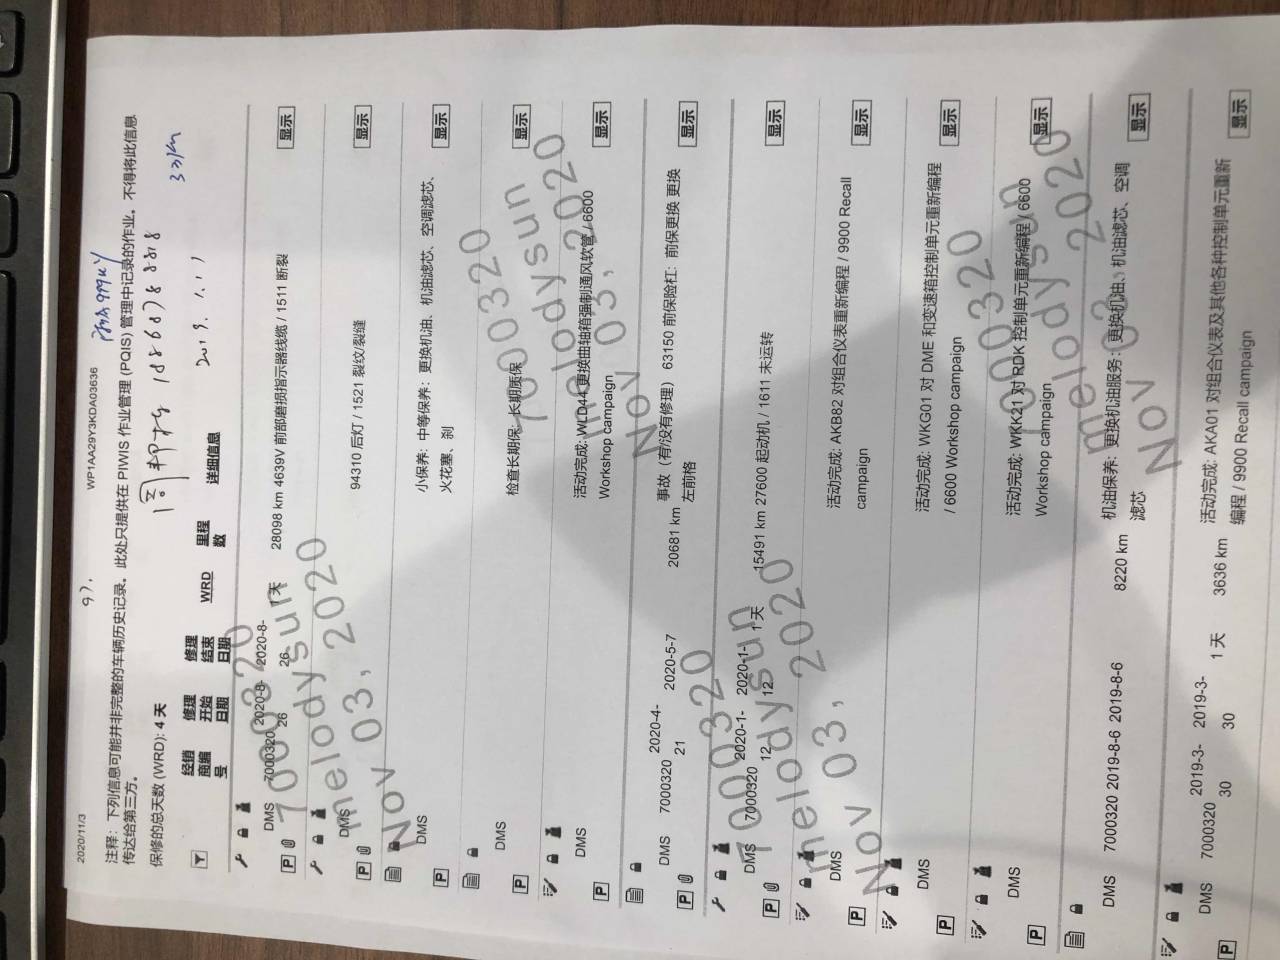 2020/11/3
97.
WP1AA29Y3KDA03636
注释：下列信息可能并非完整的车辆历史记录。此处只提供在 PIWIS 作业管理 (PQIS) 管理中记录的作业。不得将此信息
传达给第三方。
保修的总天数 (WRD): 4 天
186678
33km
2019.1.17
经销商编号 修理开始日期 修理结束日期 WRD 里程数 详细信息
DMS 7000320 2020-8-26 2020-8-26 1天 28098 km 4639V 前部磨损指示器线缆 / 1511 断裂 显示
P
DMS 94310 后灯 / 1521 裂纹/裂缝 显示
P
DMS 小保养：中等保养：更换机油、机油滤芯、空调滤芯、
火花塞、刹 显示
P
DMS 检查长期保：长期质保 显示
P
DMS 活动完成: WLD44 更换曲轴箱强制通风软管 / 6600
Workshop campaign 显示
P
DMS 7000320 2020-4-21 2020-5-7 20681 km 事故（有/没有修理） 63150 前保险杠： 前保更换 更换
左前格 显示
P
DMS 7000320 2020-1-12 2020-1-12 1天 15491 km 27600 起动机 / 1611 未运转 显示
P
DMS 活动完成: AKB82 对组合仪表重新编程 / 9900 Recall
campaign 显示
P
DMS 活动完成: WKG01 对 DME 和变速箱控制单元重新编程
/ 6600 Workshop campaign 显示
P
DMS 活动完成: WKK21 对 RDK 控制单元重新编程 / 6600
Workshop campaign 显示
P
DMS 7000320 2019-8-6 2019-8-6 8220 km 机油保养：更换机油服务：更换机油、机油滤芯、空调
滤芯 显示
DMS 7000320 2019-3-30 2019-3-30 1 天 3636 km 活动完成: AKA01 对组合仪表及其他各种控制单元重新
编程 / 9900 Recall campaign 显示
P
7000320
melodysun
Nov 03, 2020
7000320
melodysun
Nov 03, 2020
7000320
melodysun
Nov 03, 2020
7000320
melodysun
Nov 03, 2020